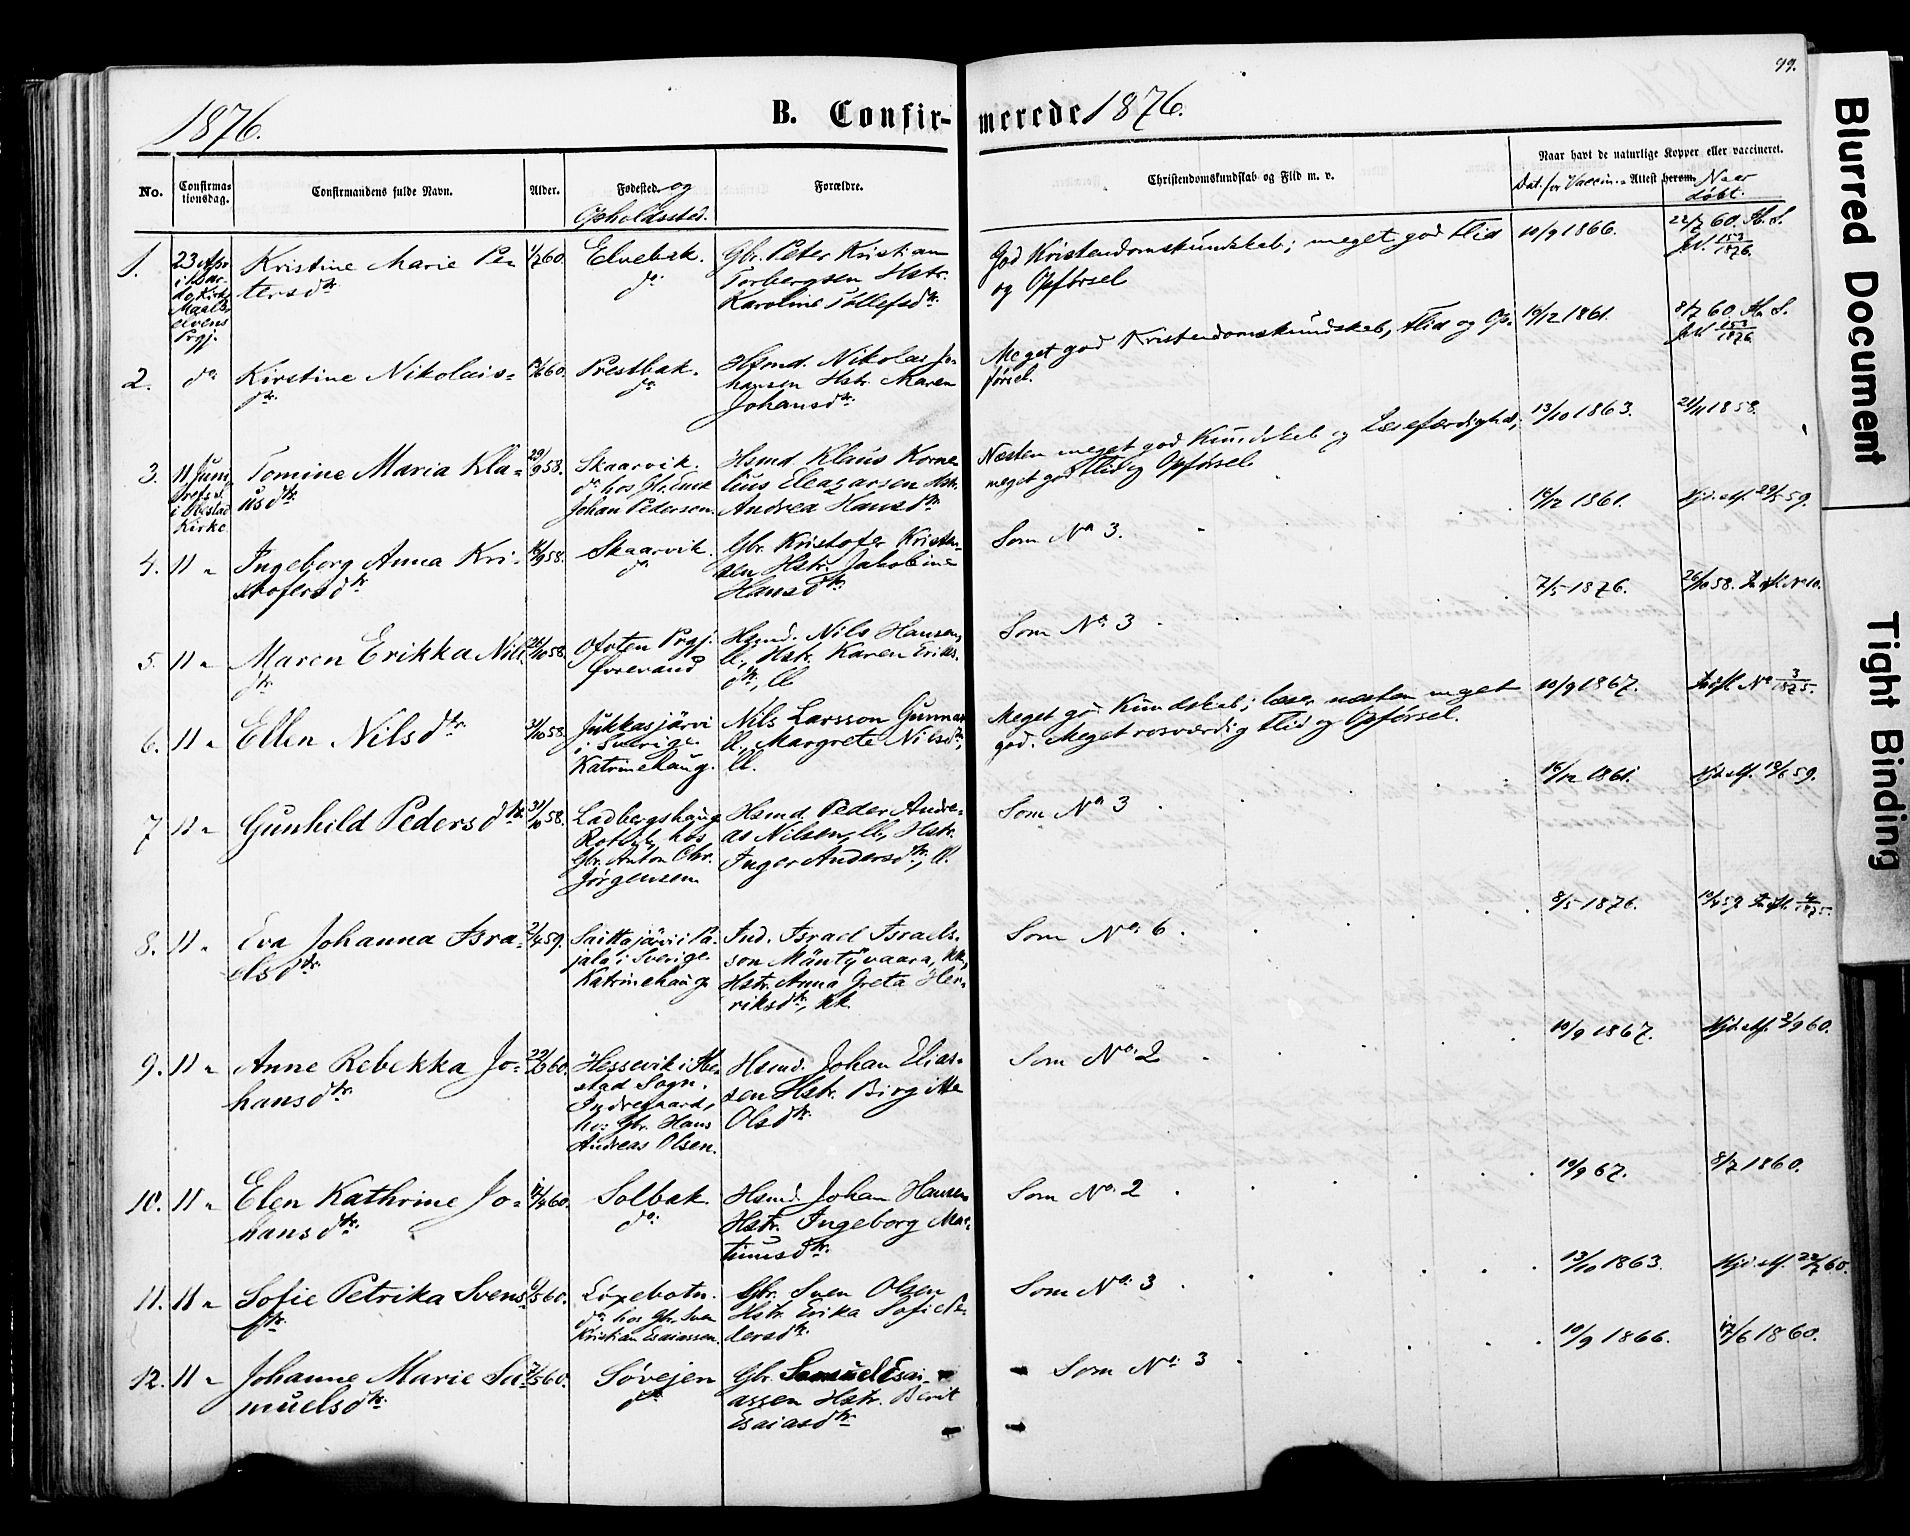 99.
1876.
B. Confir-
merede 1876.
No.
Confirma-
tionsdag.
Confirmandens fulde Navn.
Alder.
Fødested. og
Opholdssted.
Forældre.
Christendomskundskab og Flid m. v.
Naar havt de naturlige Kopper eller vaccineret.
Dat. for Vaccin.- Attest herom.
Naar
døbt.
1.
23 Apr.
i Bar-
do Kirke
Maals-
elvens
Prgj.
Kristine Marie Pe-
tersdtr.
Elvebak.
do.
Gbr. Peter Kristian
Torbergsen Hstr.
Karoline Tollefsdtr.
God Kristendomskundskab; meget god Flid
og Opførsel
10/9 1866.
22/7 60.
2.
do
Kirstine Nikolais-
dtr.
Prestbak.
do
Hsmd. Nikolas Jo-
hansen Hstr. Maren
Johansdtr.
Meget god Kristendomskundskab, Flid og Op-
førsel.
8/7 60.
3.
11 Juni
i Ibestad
Kirke
Tomine Maria Kla-
usdtr
29/9 58.
Skaarvik.
do hos Gbr. Enok
Johan Pedersen.
Hsmd. Klaus Korne-
lius Eleazarsen Hstr.
Andrea Hansdtr
Næsten meget god Kundskab og Læsefærdighed;
meget god Flid og Opførsel
13/10 1863.
21/11 1858.
4.
11 "
Ingeborg Anna Kri-
stofersdtr
Skaarvik.
do
Gbr. Kristofer Kristen-
sen Hstr. Jakobine
Hansdtr
Som No 3.
5.
11 "
Maren Erikka Nils
dtr
Ofoten Prgj.
Øvrevand
Hsmd. Nils Hansen,
ll, Hstr. Karen Eriks-
dtr, ll
Som No 3
7/5 1876.
6.
11 "
Ellen Nilsdtr
31/10 58.
Jukkasjärvi
i Sverige
Katrinehaug.
Nils Larsson Gunnar
ll, Margrete Nilsdtr,
ll.
Meget god Kundskab; læser næsten meget
god. Meget rosværdig Flid og Opførsel.
10/9 1867.
7
11 "
Gunhild Pedersdtr
31/10 58.
Ladbergshaug
hos
Gbr. Anton Chr.
Jørgensen
Hsmd. Peder Andre-
as Nilsen, ll, Hstr.
Inger Andersdtr, ll.
Som No 3
8.
11 "
Eva Johanna Isra-
elsdtr.
Saittajärvi i Pa-
jala i Sverige
Katrinehaug
Ind. Israel Israels-
son Mäntyvaara, kk,
Hstr. Anna Greta Hen-
riksdtr, kk.
Som No. 6
8/5 1876.
9.
11 "
Anne Rebekka Jo-
hansdtr
Hessevik i Ibe-
stad Sogn.
Indregaard,
hos Gbr. Hans
Andreas Olsen.
Hsmd. Johan Elias-
sen Hstr. Birgitte
Olsdtr
Som No. 2
10/9 1867.
10.
11 "
Elen Kathrine Jo-
hansdtr.
Solbak
do.
Hsmd. Johan Hansen
Hstr. Ingeborg Mar-
tinusdtr.
Som No. 2
10/9 67.
8/7 1860.
11.
11 "
Sofie Petrika Svens-
dtr.
Løxebotn.
do hos Gbr. Sven
Kristian Esaiassen.
Gbr. Sven Olsen
Hstr. Erika Sofie Pe-
dersdtr.
Som No. 3
13/10 1863.
12.
11 "
Johanne Marie Sa-
muelsdtr.
Søvejen
do
Gbr. Samuel Esai-
assen Hstr. Berit
Esaiasdtr
Som No. 3
10/9 1866.
17/6 1860.
Blurred Document
Tight Binding